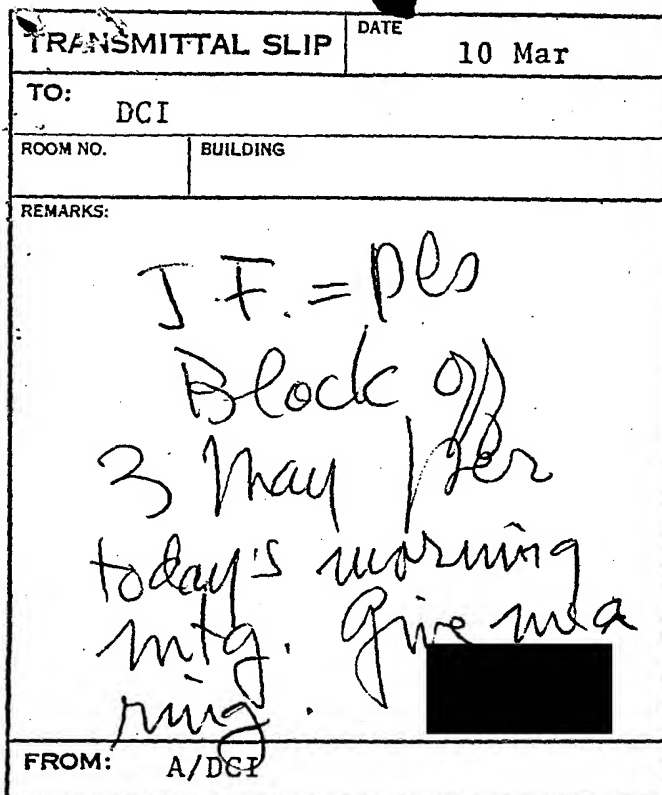 TRANSMITTAL SLIP
DATE
10 Mar
TO:
DCI
ROOM NO.
BUILDING
REMARKS:
J.F. = pls
Block off
3 May per
today's morning
mtg. Give me a
ring.
FROM:
A/DCI